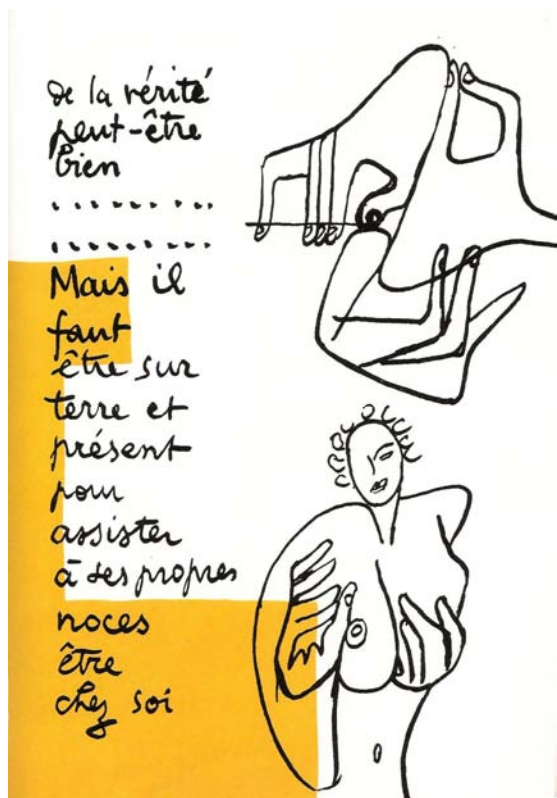 de la vérité
peut-être
bien
..........
..........
Mais il
faut
être sur
terre et
présent
pour
assister
à ses propres
noces
être
chez soi